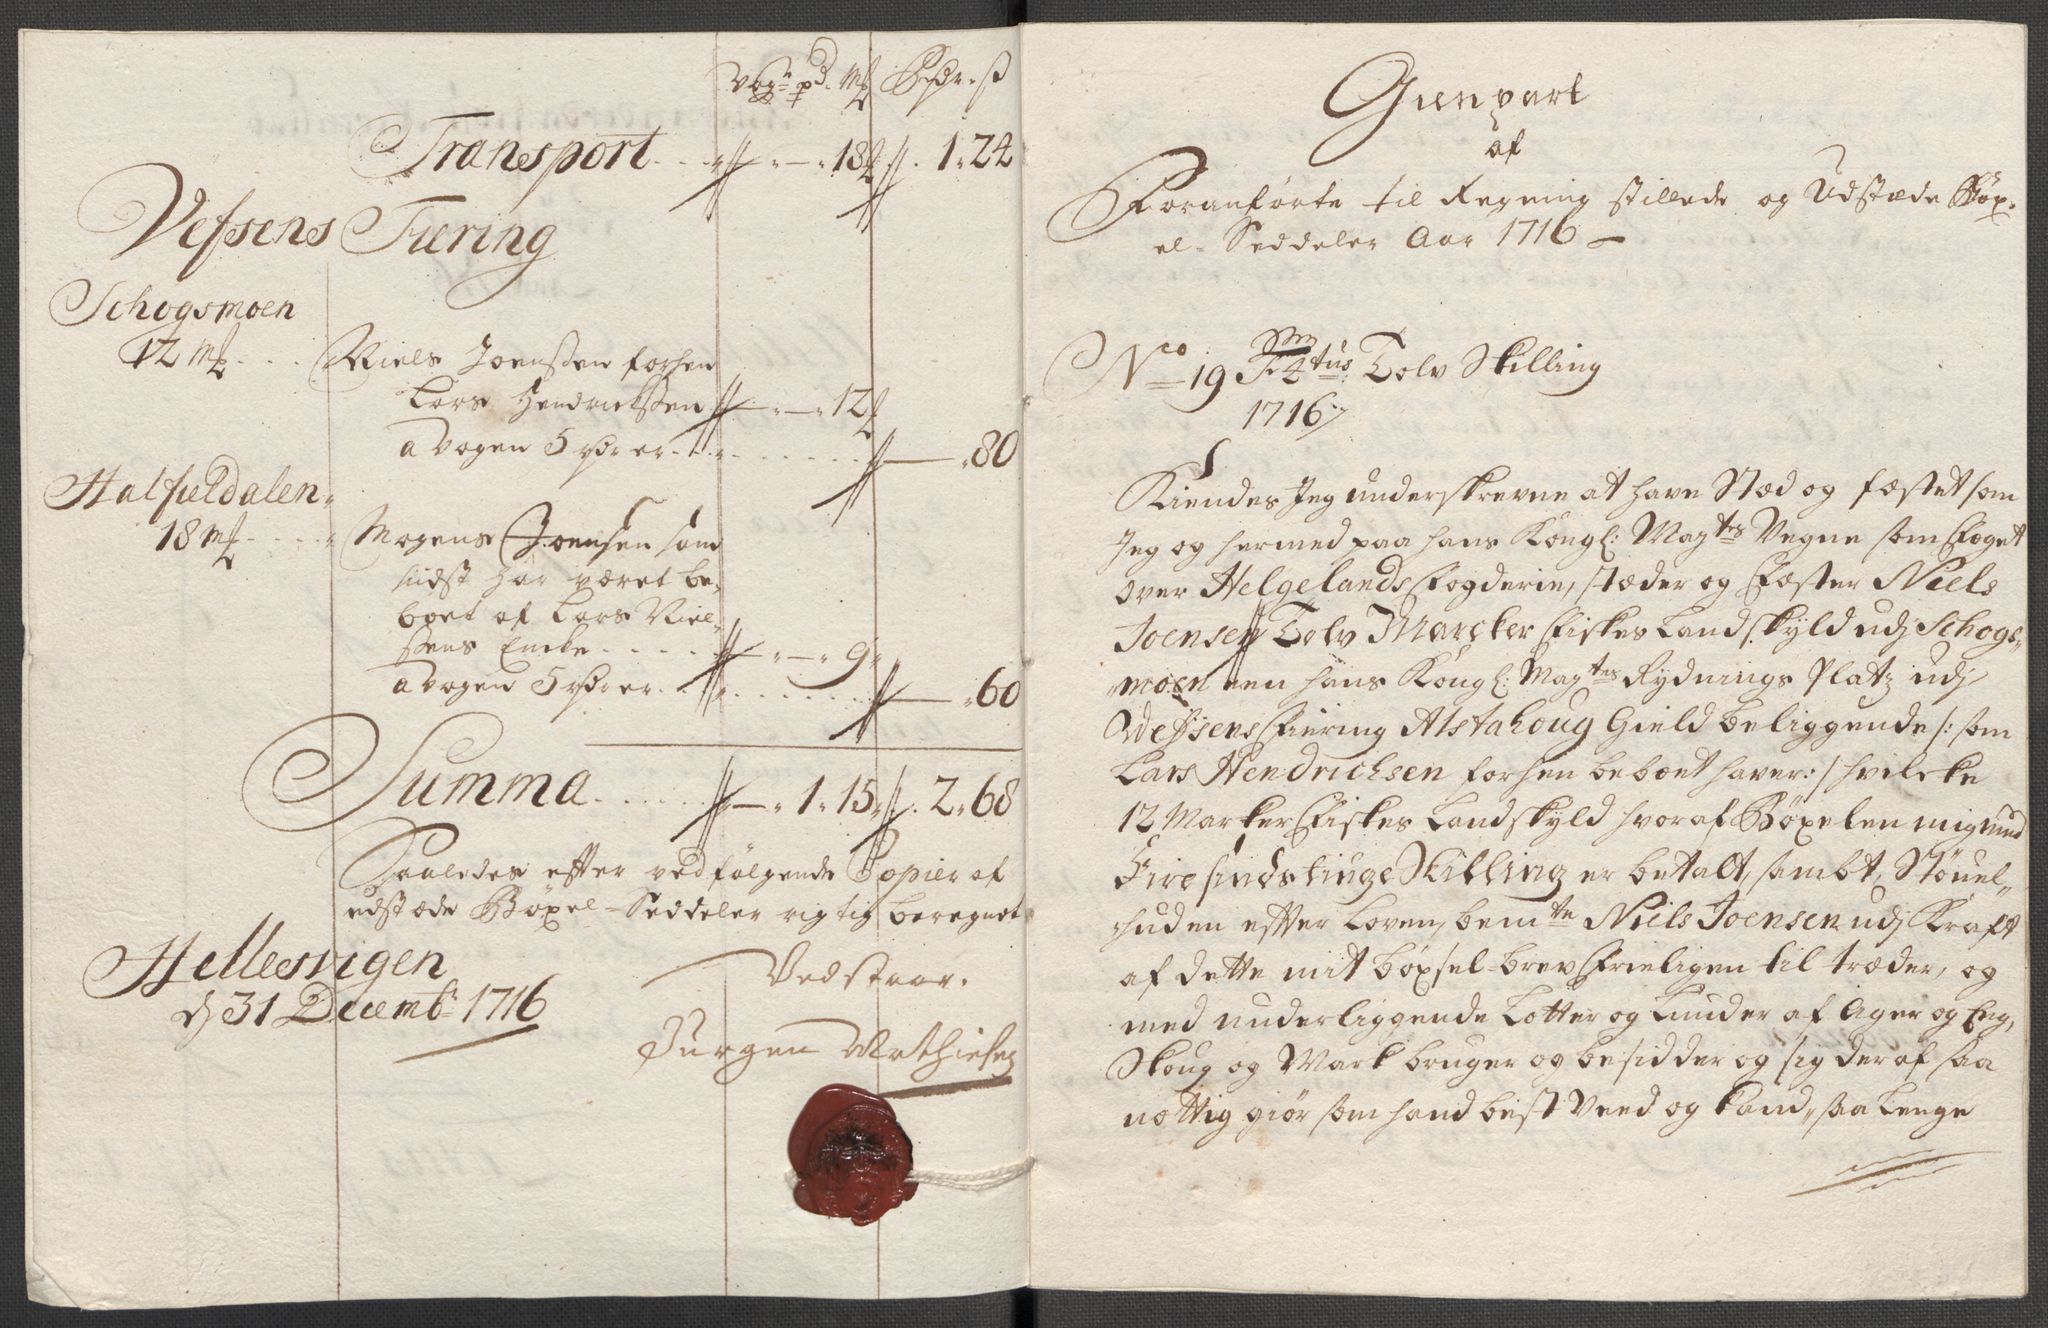 Vog: pd. Mk Rdr. ß
Transport .. 18 1. 24
Vefsens Fiering
Schogsmoen
12 Mk .. Niels Joenssen forhen
Lars Hendrichssen 12
a Vogen 5 rdr er .. 80
Halfieldalen
18 Mk .. Mogens Joensen som
sidst har været be-
boet af Lars Niel-
ssens Encke .... 9
a Vogen 5 rdr er .. 60
Summa ..... 1. 15. 2. 68
Saaledes efter vedfølgende Copier af
udstæde Böxel-Seddeler rigtig beregnet
Hellesvigen
d 31 Decembr: 1716
Vedstaar.
Jurgen Mathiesen
Gienpart
af
Foranførte til Regning stillede og Udstæde Böx-
el-Seddeler Aar 1716
No 19 Tolv Skilling
1716
Kiendes Jeg underskrevne at have Stæd og fæstet som
Jeg og hermed paa hans Kongl: Maytes Vegne som Foget
over Helgelands Fogderie, stæder og Fæster Niels
Joensen Tolv Marcker Fiskes Landskyld udj Schogs-
moen een hans Kongl: Maytes Rydnings Platz udj
Wefsens Fiering Alstahoug Gield beliggende /: som
Lars Hendrichsen forhen beboet haver :/ hvilcke
12 Marker Fiskes Landskyld hvoraf Böxelen mig med
Firesindstiuge Skilling er betalt, sambt, Støvel-
huden efter Loven, bemte Niels Joensen udj Kraft
af dette mit böxsel-brev Frieligen til træder, og
med underliggende Lotter og Lunder af Ager og Eng,
Skoug og Mark bruger og besidder og sig deraf saa
nøttig giör som hand best Veed og kand, saa lenge